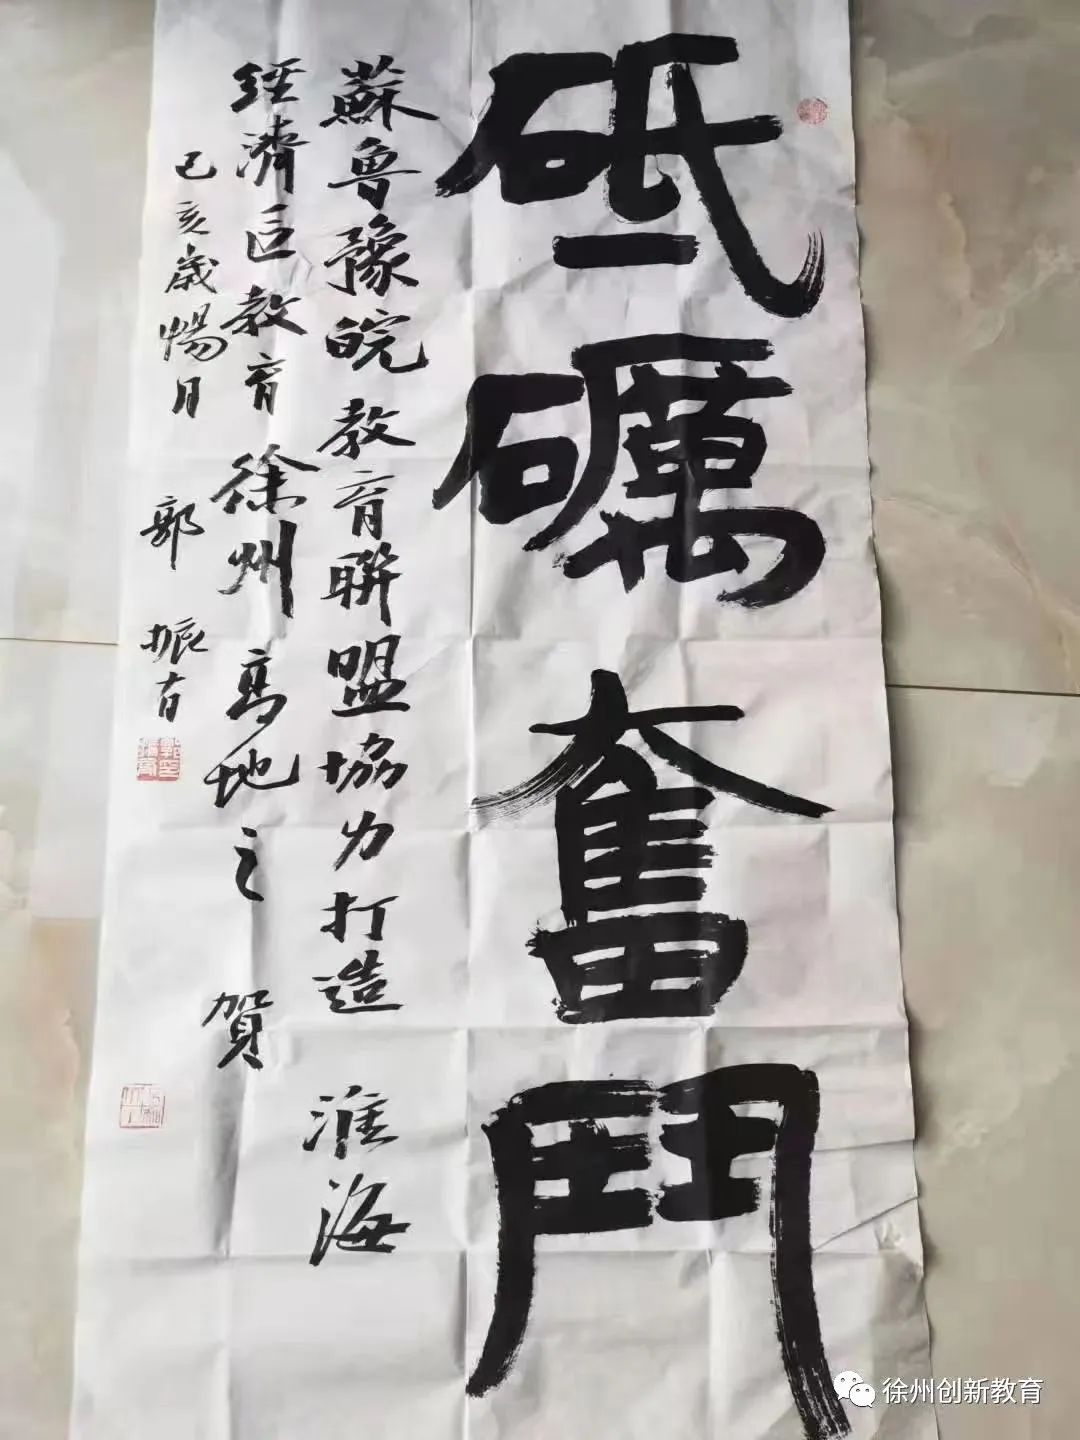 砥礪奮鬥
蘇魯豫皖教育聯盟協力打造淮海
經濟區教育徐州高地之賀
己亥歲暢月 郭振有
徐州创新教育